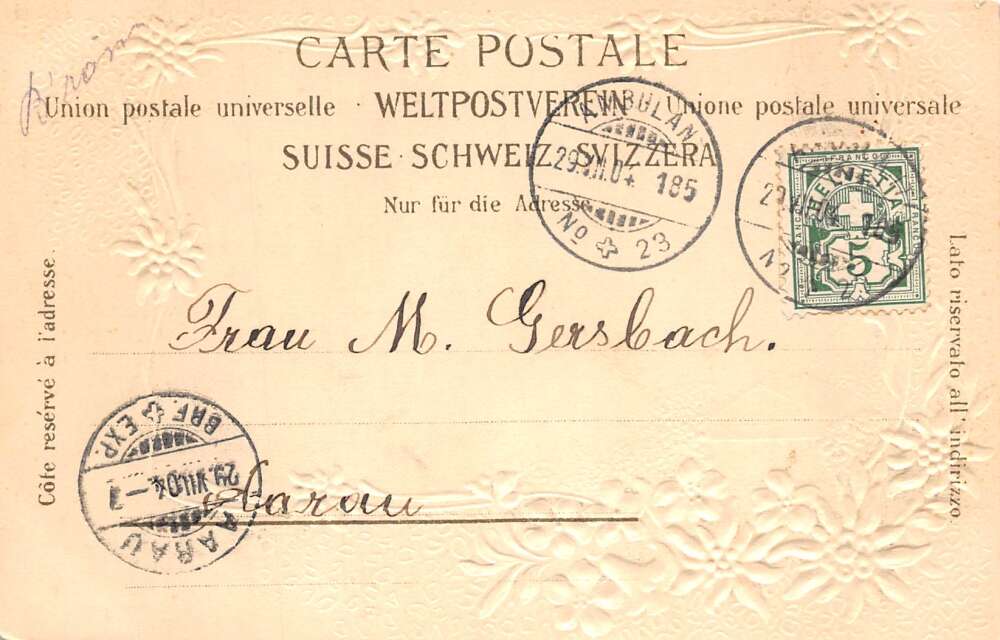 CARTE POSTALE
Union postale universelle · WELTPOSTVEREIN · Unione postale universale
SUISSE · SCHWEIZ · SVIZZERA
Nur für die Adresse
Côte resérvé à l'adresse.
Lato riservato all' indirizzo.
AMBULANT
29.VII.04 185
No 23
FRANCO
HELVETIA
5
Frau M. Gersbach.
BRF. EXP.
29.VII.04 – 7
AARAU
Aarau